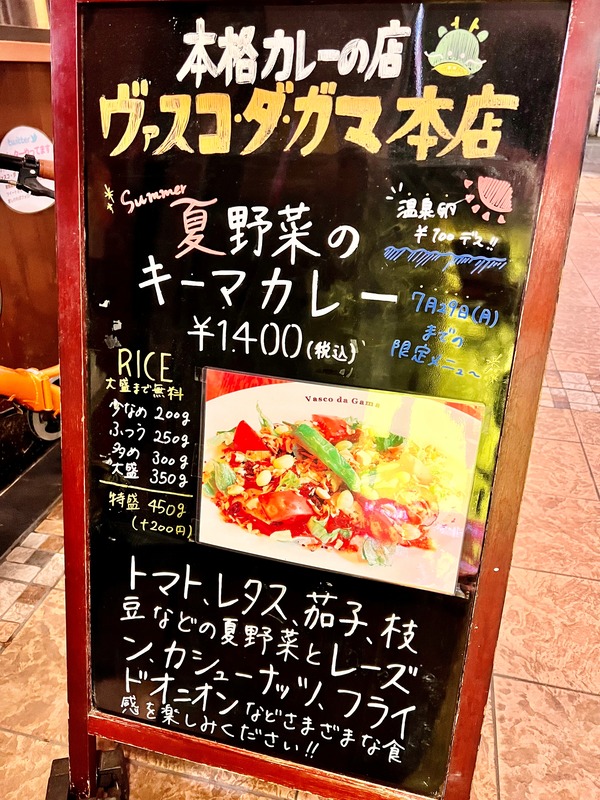 本格カレーの店
ヴァスコ・ダ・ガマ本店
Summer
夏野菜の
キーマカレー
¥1400(税込)
温泉卵
¥100デス!!
7月29日(月)
までの
限定メニュ〜
RICE
大盛まで無料
少なめ 200g
ふつう 250g
多め 300g
大盛 350g
特盛 450g
(+200円)
Vasco da Gama
トマト、レタス、茄子、枝
豆などの夏野菜とレーズ
ン、カシューナッツ、フライ
ドオニオンなどさまざまな食
感を楽しみください!!